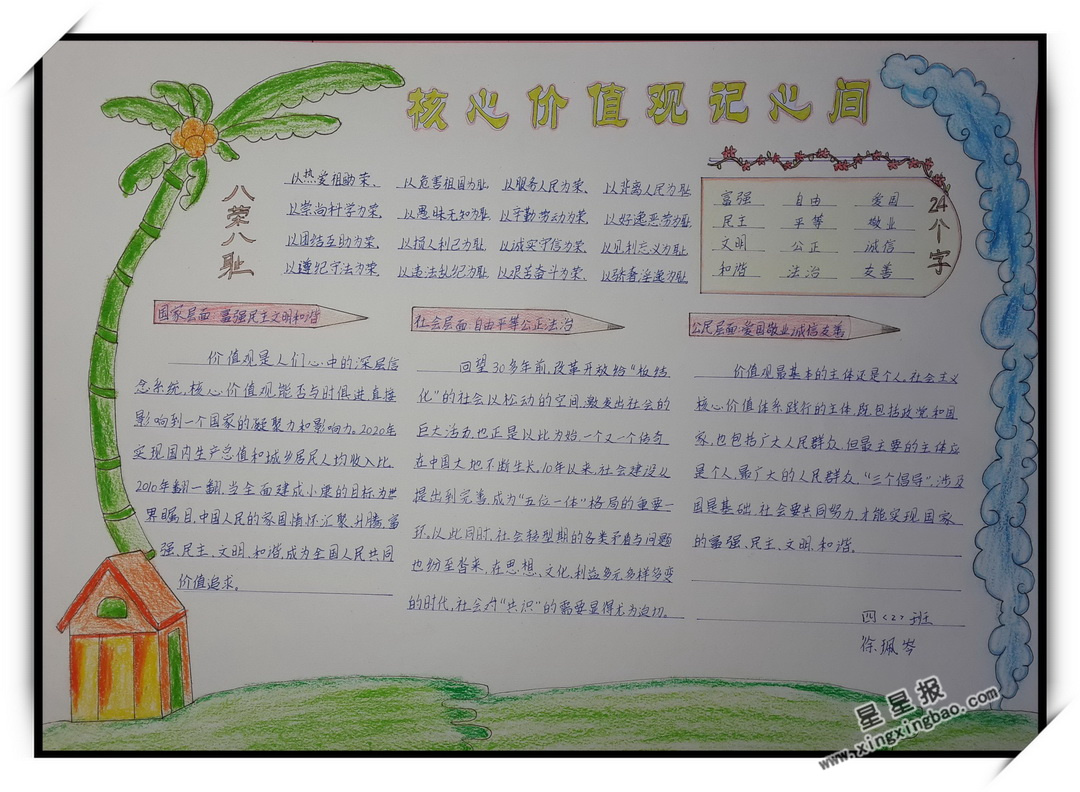 核心价值观记心间
八荣八耻
以热爱祖助荣、 以危害祖国为耻 以服务人民为荣、 以背离人民为耻
以崇尚科学为荣、 以愚昧无知为耻 以辛勤劳动为荣、 以好逸恶劳为耻
以团结互助为荣、 以损人利己为耻 以诚实守信为荣、 以见利忘义为耻
以遵纪守法为荣 以违法乱纪为耻 以艰苦奋斗为荣、 以骄奢淫逸为耻
24个字
富强 自由 爱国
民主 平等 敬业
文明 公正 诚信
和谐 法治 友善
国家层面:富强民主文明和谐
价值观是人们心中的深层信
念系统,核心价值观能否与时俱进直接
影响到一个国家的凝聚力和影响力。2020年
实现国内生产总值和城乡居民人均收入比
2010年翻一翻,当全面建成小康的目标为世
界瞩目,中国人民的家国情怀汇聚、升腾,富
强、民主、文明、和谐,成为全国人民共同
价值追求。
社会层面:自由平等公正法治
回望30多年前,改革开放给“板结
化”的社会以松动的空间,激发出社会的
巨大活力,也正是以此为始,一个又一个传奇
在中国大地不断生长,10年以来,社会建设从
提出到完善,成为“五位一体”格局的重要一
环。从此同时,社会转型期的各类矛盾与问题
也纷至沓来,在思想、文化、利益多元多样多变
的时代,社会对“共识”的需要显得尤为迫切。
公民层面:爱国敬业诚信友善
价值观最基本的主体还是个人,社会主义
核心价值体系践行的主体,既包括政党和国
家,也包括广大人民群众,但最主要的主体应
是个人,最广大的人民群众,“三个倡导”,涉及
国是基础,社会要共同努力,才能实现国家
的富强、民主、文明、和谐。
四〈2〉班
徐珮岑
星星报
www.xingxingbao.com